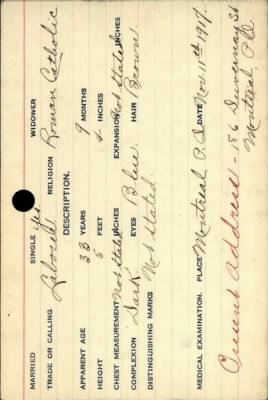 MARRIED SINGLE yes WIDOWER
TRADE OR CALLING Laborer RELIGION Roman Catholic
DESCRIPTION.
APPARENT AGE 33 YEARS 9 MONTHS
HEIGHT 5 FEET 4 INCHES
CHEST MEASUREMENT Not stated INCHES EXPANSION Not stated INCHES
COMPLEXION Dark EYES Blue HAIR Brown.
DISTINGUISHING MARKS Not stated.
MEDICAL EXAMINATION. PLACE Montreal P.Q. DATE Nov. 11th 1917.
Present Address - 186 St
Montreal, P.Q.